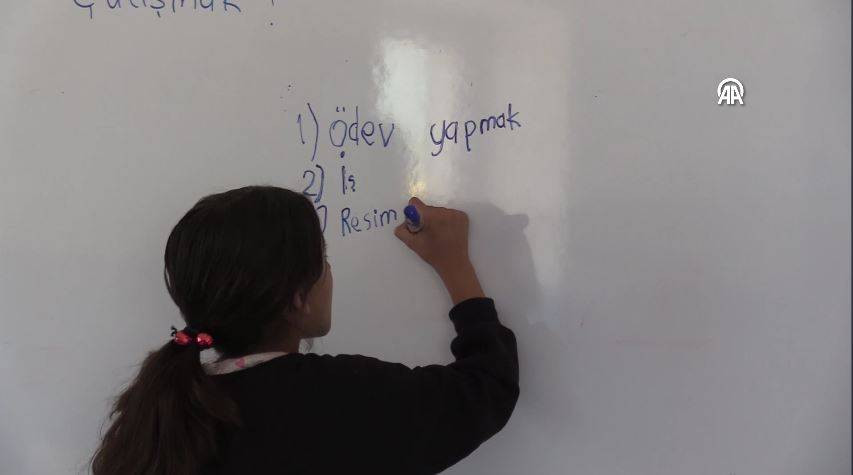 Çalışmak ?
1) Ödev yapmak
2) İş
) Resim
AA